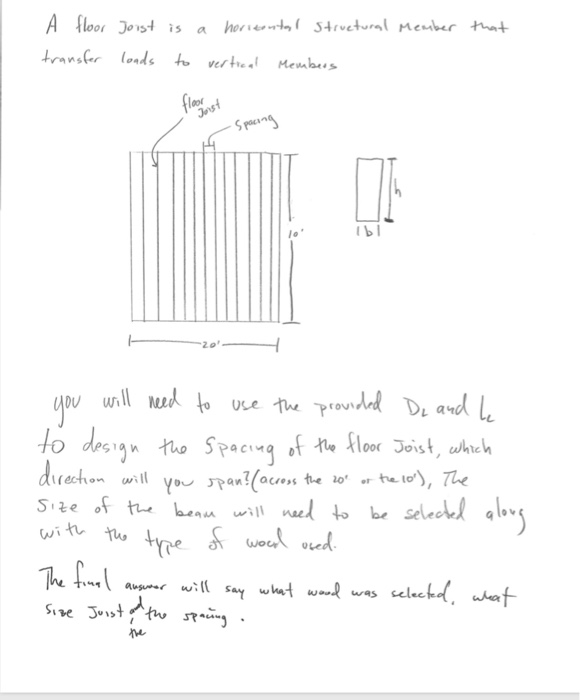 A floor Joist is a horizontal structural Member that
transfer loads to vertical Members
floor
Joist
Spacing
10'
h
b
20'
you will need to use the provided DL and LL
to design the Spacing of the floor Joist, which
direction will you span? (across the 20' or the 10'), The
Size of the beam will need to be selected along
with the type of wood used.
The final answer will say what wood was selected, what
Size Joist and the spacing.
the